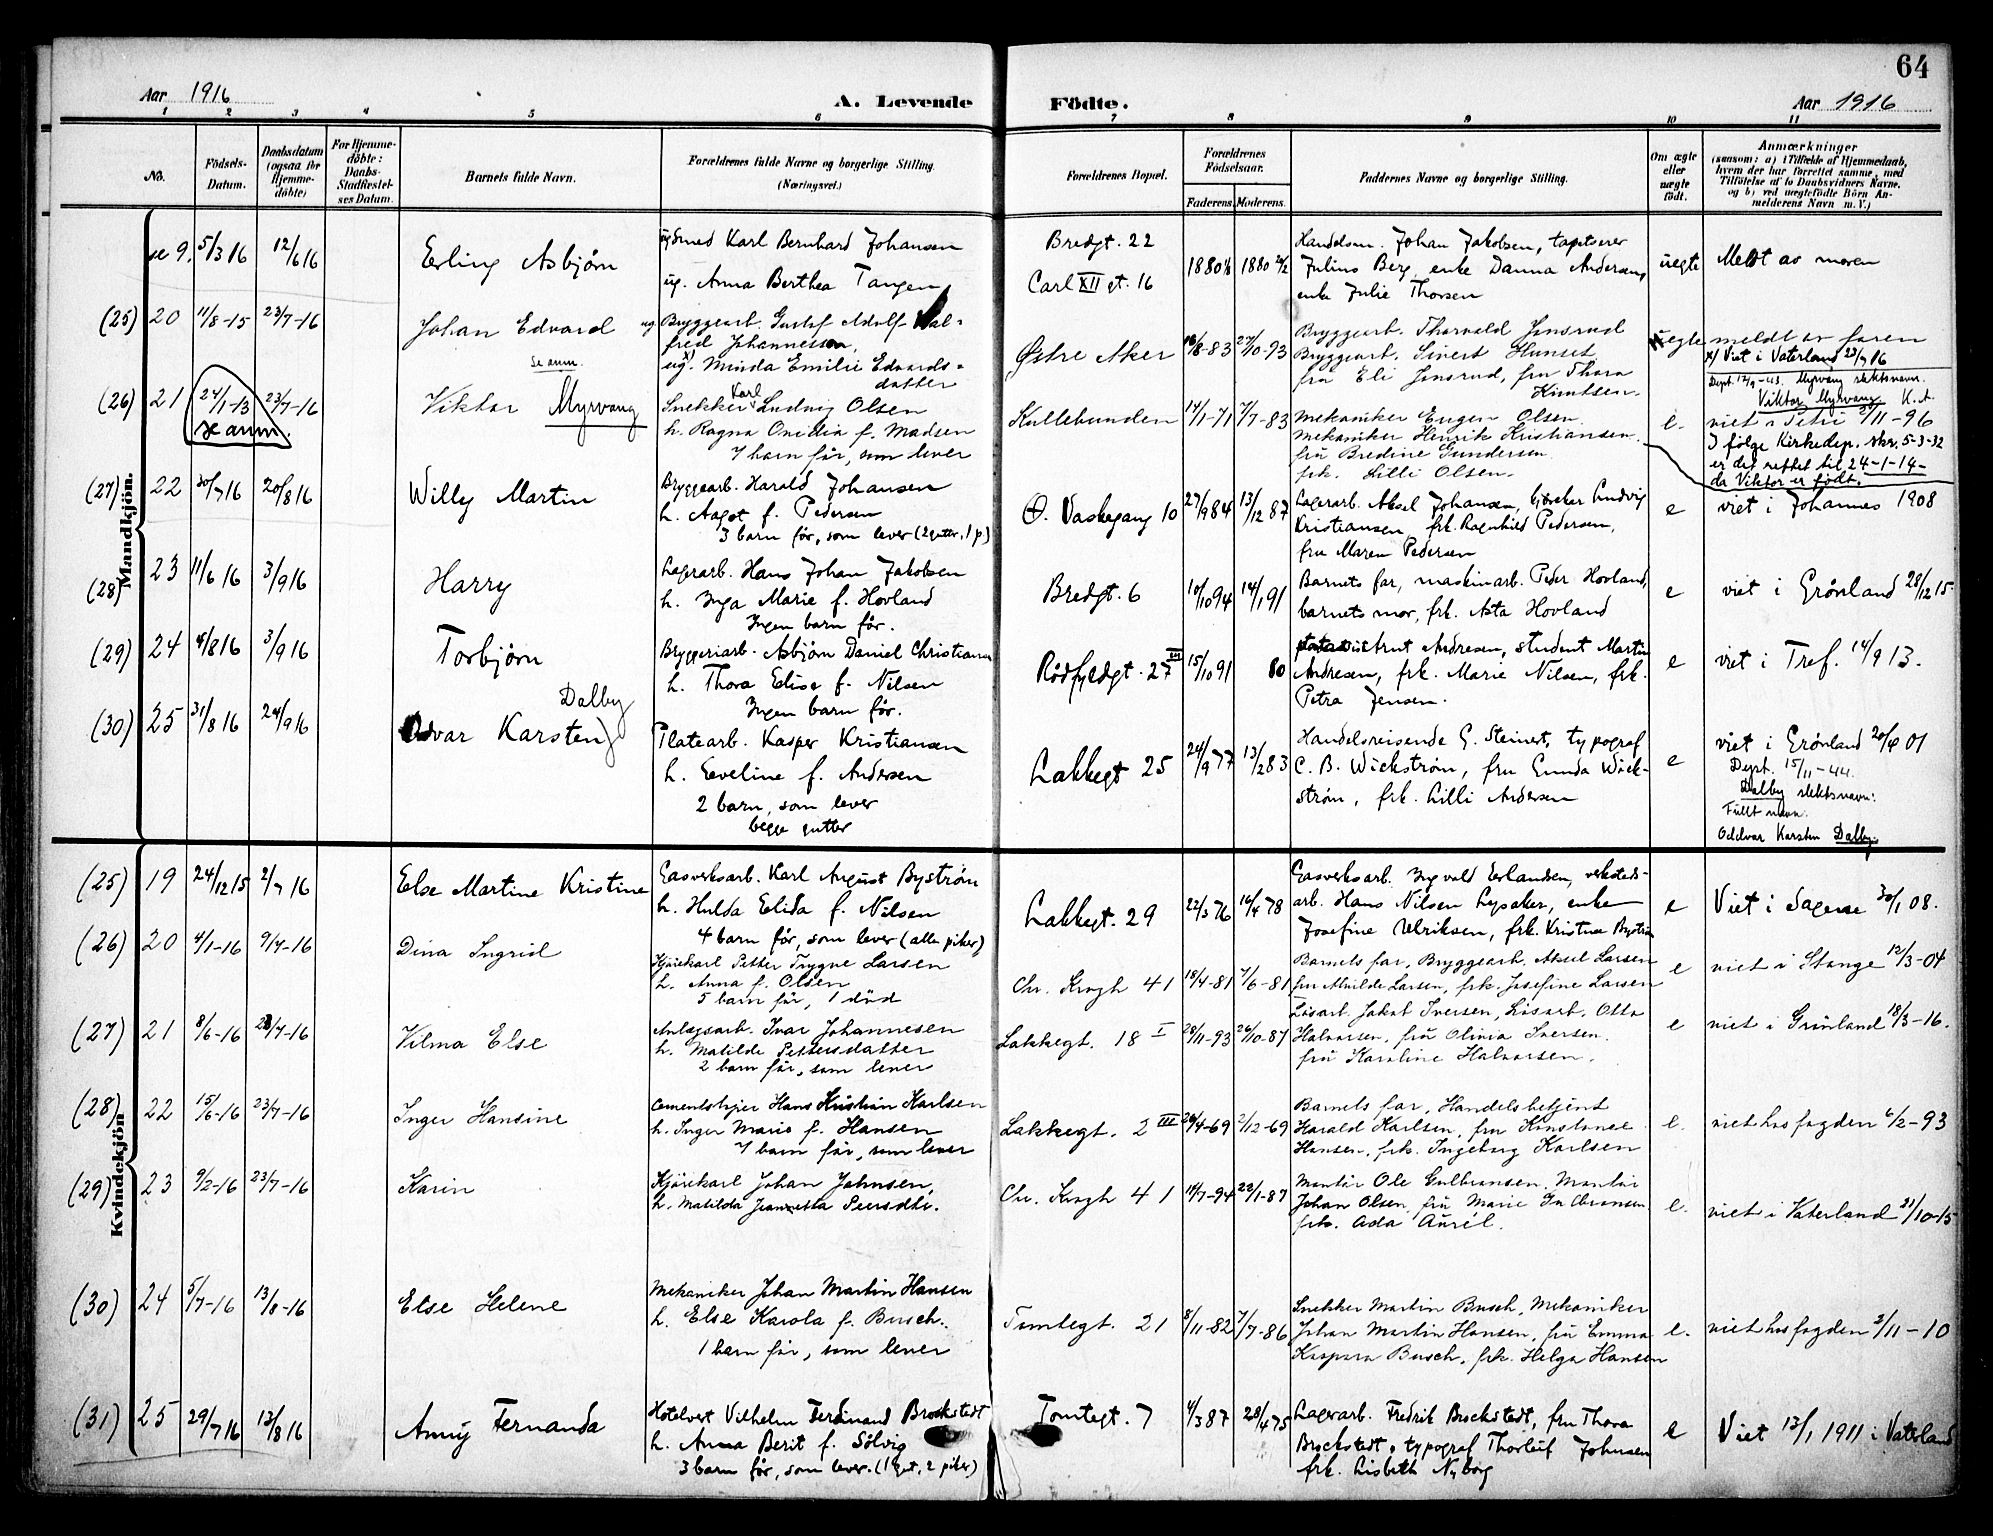 64
Aar 1916
A. Levende
Födte.
Aar 1916
1 2 3 4 5 6 7 8 9 10 11
No.
Födsels-
Datum.
Daabsdatum
(ogsaa for
Hjemme-
döbte)
For Hjemme-
döbte:
Daabs-
Stadfæstel-
ses Datum.
Barnets fulde Navn.
Forældrenes fulde Navne og borgerlige Stilling.
(Næringsvei.)
Forældrenes Bopæl.
Forældrenes
Födselsaar.
Faderens. Moderens.
Faddernes Navne og borgerlige Stilling.
Om ægte
eller
uægte
født.
Anmærkninger
(saasom: a) i Tilfælde af Hjemmedaab,
hvem der har forrettet samme, med
Tilföielse af to Daabsvidners Navne.
og b) ved uægtefödte Börn An-
melderens Navn m. V.)
Mandkjön.
9. 5/3 16 12/6 16
Erling Asbjørn
ug. Smed Karl Bernhard Johansen
ug. Anna Berthea Tangen
Bredgt. 22
Carl XII gt. 16
1880 1880
Handelsm. Johan Jakobsen, tapetserer
Julius Berg, enke Danna Andersen,
enke Julie Thorsen
uegte
Meldt av moren
(25) 20 11/8-15 23/7-16
Johan Edvard
ug. Bryggearb. Gustaf Adolf Wal-
fred Johannesson,
ug. x) Minda Emilie Edvards-
datter
Østre Aker
16/8-83 27/10-93
Bryggearb. Thorvald Jensrud
Bryggearb. Sivert Hunset
fru Eli Jensrud, fru Thora
Knutsen.
uegte
meldt av faren
x/ Viet i Vaterland 23/7 16
(26) 21 24/1-13 23/7-16
se anm.
Se anm.
Viktor Myrvang
Snekker Karl Ludvig Olsen
h. Ragna Onidia f. Madsen
7 barn før, som lever
Kullebunden
14/1-71 7/7-83
Mekaniker Eugen Olsen
Mekaniker Henrik Kristiansen.
fru Bredine Gundersen
frk. Lilli Olsen.
e.
Dept. 12/9-43. Myrvang slektsnavn.
Viktor Myrvang K.A.
viet i Petri 27/11-96
I følge Kirkedep. skr. 5-3-32
er det rettet til 24-1-14-
da Viktor er født.
(27) 22 30/7 16 20/8 16
Willy Martin
Bryggearb. Harald Johansen
h. Aagot f. Pedersen
3 barn før, som lever (2 gutter, 1 p)
Ø. Vaskegang 10
27/9 84 13/12 87
Lagerarb. Aksel Johansen, bjæcker Ludvig
Kristiansen, frk. Ragnhild Pedersen,
fru Maren Pedersen
e
viet i Johannes 1908
(28) 23 11/6 16 3/9 16
Harry
Lagrarb. Hans Johan Jakobsen
h. Inga Marie f. Hovland
Ingen barn før.
Bredgt. 6
10/10 94 14/1 91
Barnets far, maskinarb. Peder Hovland,
barnets mor, frk. Asta Hovland
e
viet i Grønland 28/12 15
(29) 24 4/8 16 3/9 16
Torbjørn
Bryggeriarb. Asbjørn Daniel Christiansen
h. Thora Elise f. Nilsen
Ingen barn før.
Rødfyldgt. 27 III
15/10 91 80
Arnt Andresen, student Martin
Andresen, frk. Marie Nilsen, frk.
Petra Jensen.
e
viet i Tref. 14/9 13.
(30) 25 31/8 16 24/9 16
Odvar Karsten Dalby
Platearb. Kasper Kristiansen
h. Eveline f. Andersen
2 barn, som lever
begge gutter
Lakkegt 25
24/9 77 13/2 83
Handelsreisende G. Steinert, typograf
C. B. Wickstrøm, fru Gunda Wick-
strøm, frk. Lilli Andersen
e
viet i Grønland 20/4 01
Dept. 15/11-44.
Dalby slektsnavn.
Fullt navn:
Oddvar Karsten Dalby.
Kvindekjön
(25) 19 24/12 15 2/7 16
Else Martine Kristine
Gasverksarb. Karl August Byström
h. Hulda Elida f. Nilsen
4 barn før, som lever (alle piker)
Lakkegt. 29
22/3 76 16/4 78
Gasverksarb. Ingvald Erlandsen, verksteds-
arb. Hans Nilsen Lysaker, enken
Josefine Ulriksen, frk. Kristine Byström
e
Viet i Sagene 30/1 08.
(26) 20 4/1-16 9/7-16
Dina Ingrid
Kjørekarl Petter Trygve Larsen
h. Anna f. Olsen
5 barn før, 1 død
Chr. Krogh 41
18/4-81 7/6-81
Barnets far, Bryggearb. Aksel Larsen
fru Alvilde Larsen, frk. Josefine Larsen
e
viet i Stange 12/3-04
(27) 21 8/6-16 23/7-16
Vilma Else
Anlægsarb. Ivar Johannesen
h. Matilde Pettersdatter
2 barn før, som lever
Lakkegt. 18 I
28/11-93 26/10-87
Løsarb. Jakob Iversen, Løsarb. Otto
Halvorsen, fru Olivia Iversen.
fru Karoline Halvorsen.
e
viet i Grünland 18/3-16.
(28) 22 15/6-16 23/7-16
Inger Hansine
Cementstøper Hans Kristian Karlsen
h. Inger Marie f. Hansen
7 barn før, som lever
Lakkegt. 2 III
24/4-69 2/12-69
Barnets far, Handelsbetjent
Harald Karlsen, fru Konstanse
Hansen, frk. Ingeborg Karlsen
e.
viet hos fogden 6/2-93
(29) 23 9/2-16 23/7-16
Karin
Kjørekarl Johan Johnsen,
h. Matilda Jeannetta Peersdtr.
Chr. Krogh 41
14/7-94 22/1-87
Montør Ole Gulbransen, Montør
Johan Olsen, fru Marie Gulbransen
frk. Ada Aurel.
e.
viet i Vaterland 21/10-15
(30) 24 5/7-16 13/8-16
Else Helene
Mekaniker Johan Martin Hansen
h. Else Karola f. Busch.
1 barn før, som lever
Tomtegt. 21
8/11-82 7/7-86
Snekker Martin Busch, Mekaniker
Johan Martin Hansen, fru Emma
Kaspara Busch, frk. Helga Hansen
e.
viet hos fogden 2/11-10
(31) 25 29/7 16 13/8 16
Anny Fernanda
Hotelvert Vilhelm Ferdinand Brockstedt
h. Anna Berit f. Sölvig
3 barn før, som lever. (1 gut, 2 piker)
Tomtegt. 7
4/3 87 28/4 75
Lagerarb. Fredrik Brockstedt, fru Thora
Brockstedt, typograf Thorleif Johnsen
frk. Lisbeth Nyborg
e
Viet 13/1 1911 i Vaterland